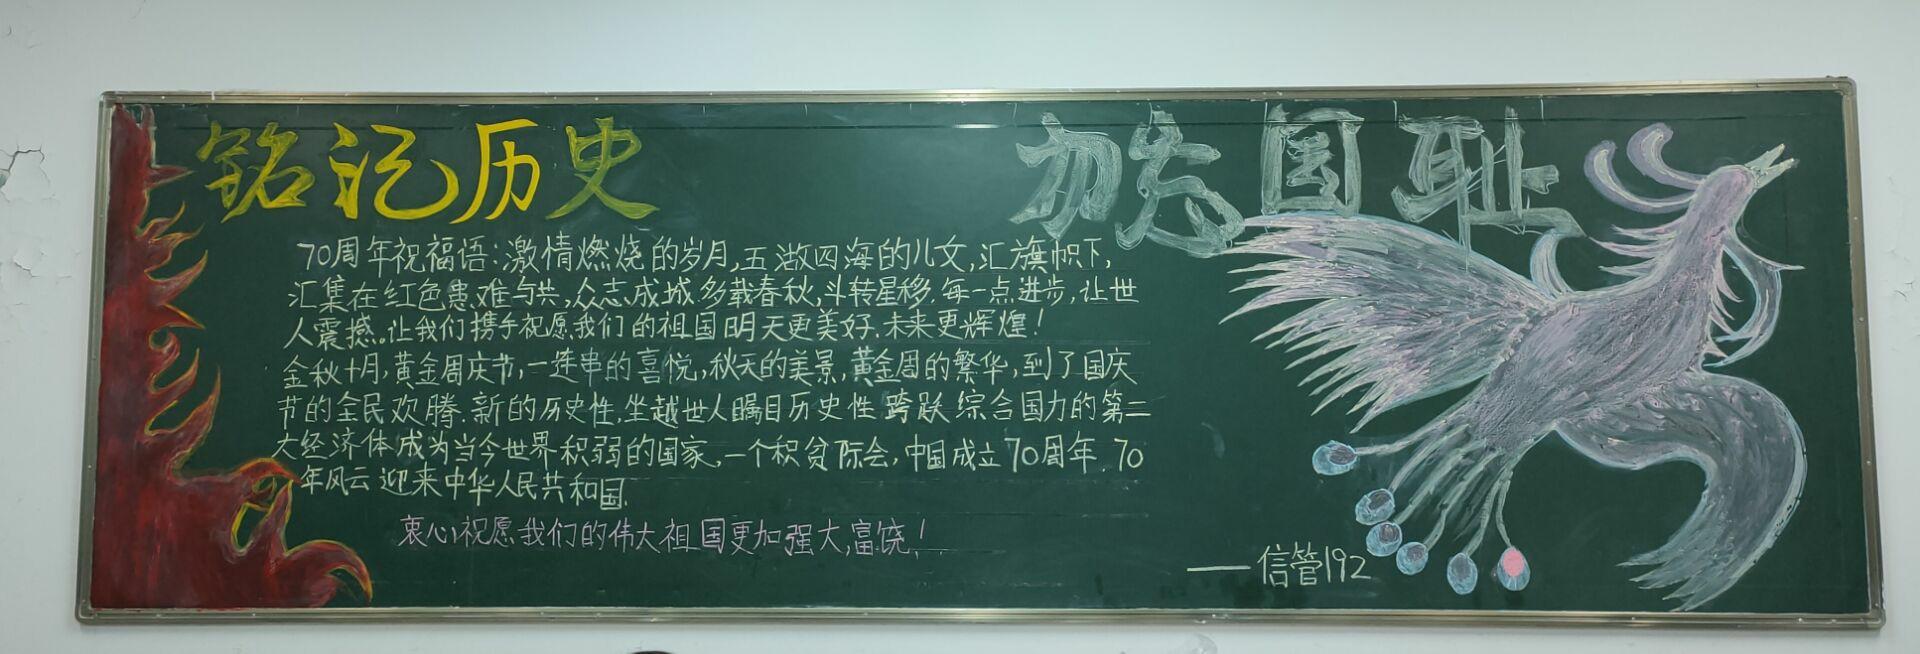 铭记历史
勿忘国耻
70周年祝福语:激情燃烧的岁月,五湖四海的儿女,汇旗帜下,
汇集在红色患难与共,众志成城.多载春秋,斗转星移.每一点进步,让世
人震撼。让我们携手祝愿我们的祖国明天更美好.未来更辉煌!
金秋十月,黄金周庆节,一连串的喜悦,秋天的美景,黄金周的繁华,到了国庆
节的全民欢腾.新的历史性,坐越世人瞩目历史性跨跃综合国力的第二
大经济体成为当今世界积弱的国家,一个积贫际会,中国成立70周年 70
年风云迎来中华人民共和国.
衷心祝愿我们的伟大祖国更加强大,富饶!
——信管192